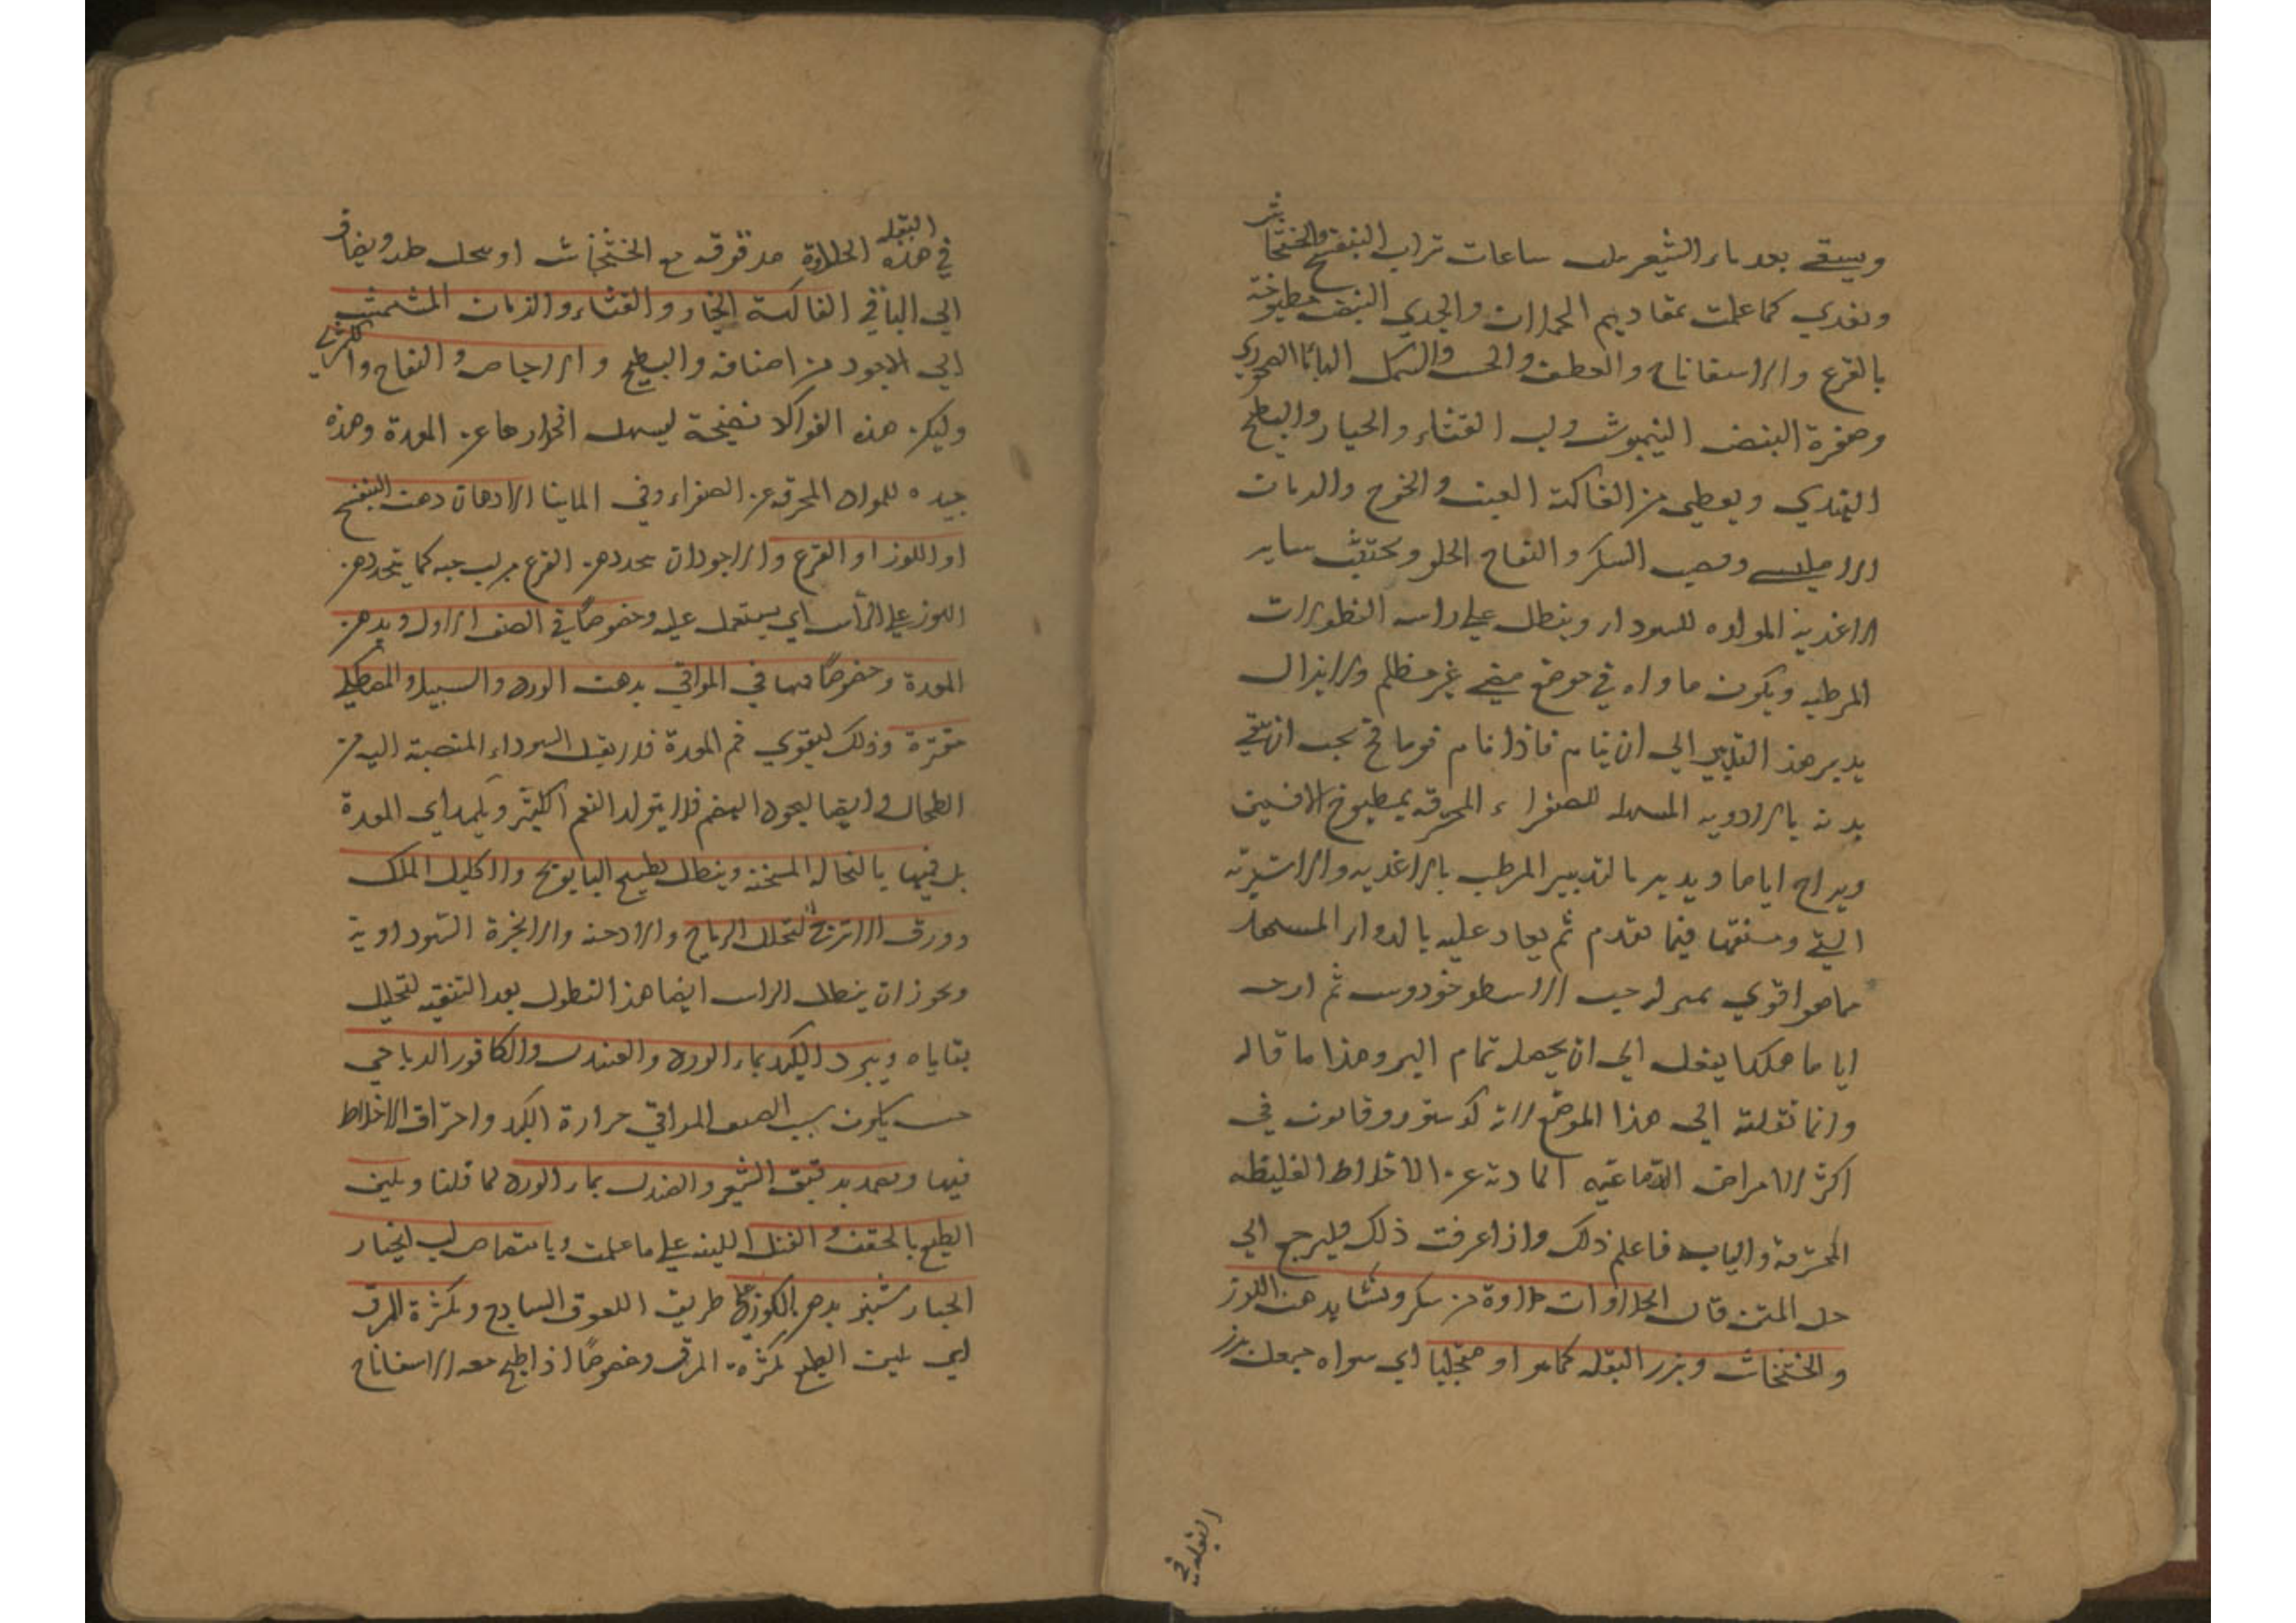 ويسقي بعد ماء الشعير بثلث ساعات شراب البنفسج والخشخاش
ويغدي كما علمت بمقاديم الحملان والجدي مطبوخة
بالقرع والاسفاناخ والقطف والخس والسمك
وصفرة البيض النيمبرشت ولب القثاء والخيار والبطيخ
الهندي ويعطي من الفاكهة العنب والخوخ والرمان
الامليسي وقصب السكر والتفاح الحلو ويجتنب ساير
الاغذية المولده للسوداء وينطل علي راسه النطولات
المرطبه ويكون ماواه في موضع مضي غير مظلم ولا يزال
يدبر هذ التدبير الي ان ينام فاذا نام نوما يجب ان ينقي
بدنه بالادويه المسهله للصفراء المحرقه بمطبوخ الافسنتين
ويراح اياما ويدبر بالتدبير المرطب بالاغذيه والاشربة
التي وصفتها فيما تقدم ثم يعاد عليه بالدواء المسهل
مما هو اقوي بمنزلة حب الاسطوخودوس ثم ارحه
اياما هكدا يفعل الي ان يحصل تمام البرو هذا ما قاله
وانما نقلته الي هذا الموضع لانه كدستور وقانون في
اكثر الامراض الدماغيه الحادثة عن الاخلاط الغليظه
المحترقة واليابسه فاعلم ذلك واذا عرفت ذلك فليرجع الي
حل المتن قال الحلاوات حلاوة من سكر ونشا بدهن اللوز
والخشخاش وبزر البقله كما هو او اي سواه جعلت بزر
البقله في
البقله
في هذه الحلاوة مدقوقه مع الخشخاش او ويضاف
الي الباقي الفاكهة الخيار والقثاء والرمان
الي الاجود من اصنافه والبطيخ والاجاص والتفاح والكمثري
وليكن هذه الفواكه نضيجة ليسهل انحدارها عن المعدة وهذه
جيده للمواد المحرقه عن الصفراء وفي الماليخوليا الادهان دهن البنفسج
او اللوز او القرع والاجودان يتخذ دهن القرع من لب حبه كما يتخذ دهن
اللوز علي الرأس اي يستعمل عليه وخصوصًا في الصنف الاول ويدهن
المعدة وخصوصًا فيها في المراقي بدهن الورد والسنبل والمصطكي
مقترة وذلك ليقوي فم المعدة فلا يقبل السوداء المنصبة اليه من
الطحال وايضا ليجود الهضم فلا يتولد النفخ الكثير ويكمد اي المعدة
بل فيها بالنخاله المسخنه وينطل بطبيخ البابونج والاكليل الملك
وورق الاترنج لتحلل الرياح والادخنه والابخرة السوداوية
ويجوز ان ينطل الراس ايضا هذ النطول بعد التنقيه لتحليل
بقاياه ويبرد الكبد بماء الورد والصندل والكافور الرباحي
حيث يكون سبب الصنف المراقي حرارة الكبد واحتراق الاخلاط
فيها ويضمد بدقيق الشعير والصندل بماء الورد لما قلنا ويلين
الطبع بالحقن والفتل اللينه علي ما علمت وبامتصاص لب الخيار
الخيار شنبر بدهن اللوز علي طريق اللعوق الساذج وبكثرة المرق
اي يلين الطبع بكثرة المرق وخصوصًا اذا طبخ معه الاسفاناخ